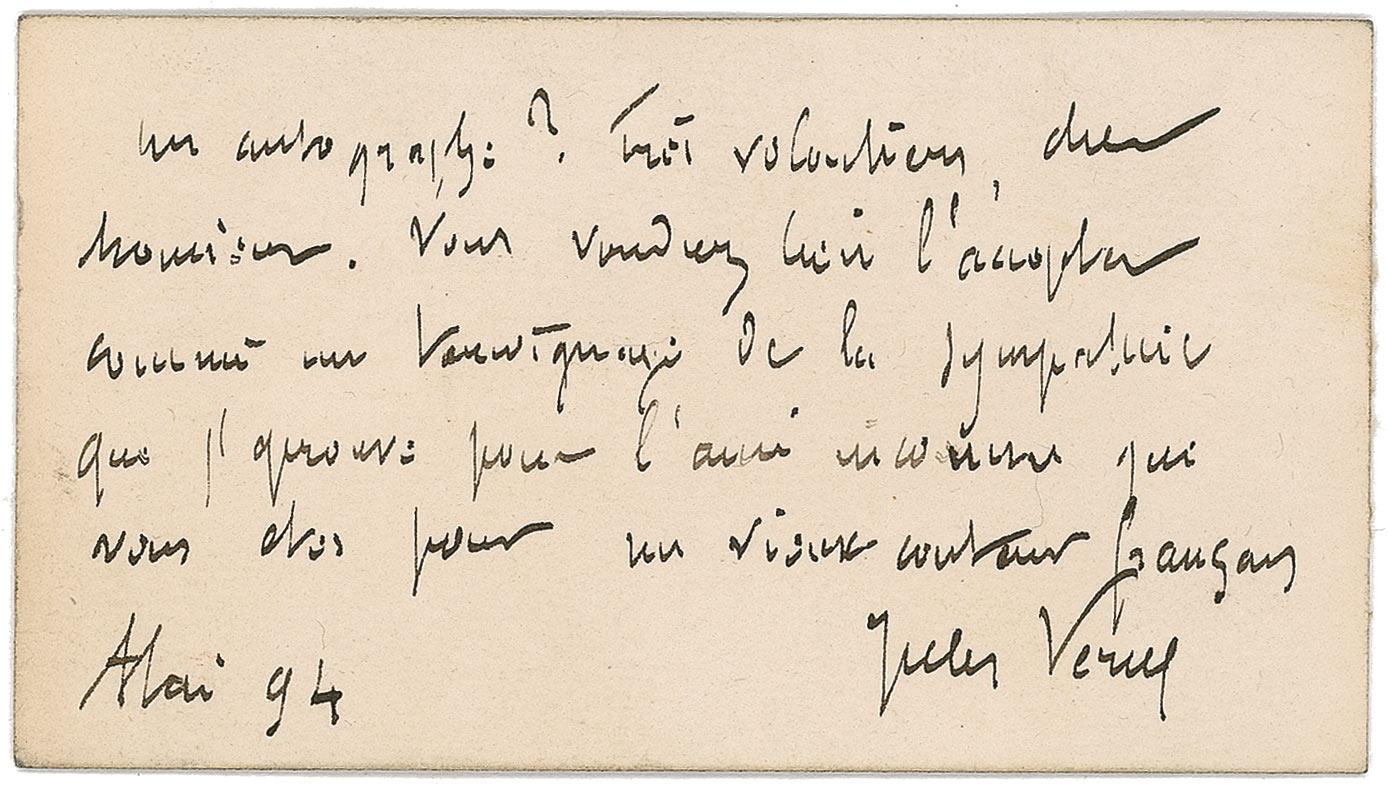 un autographe ? Très volontiers, cher
Monsieur. Vous voudrez bien l'accepter
comme un témoignage de la sympathie
que j'éprouve pour l'ami inconnu que
vous êtes pour un vieux conteur français
Mai 94 Jules Verne